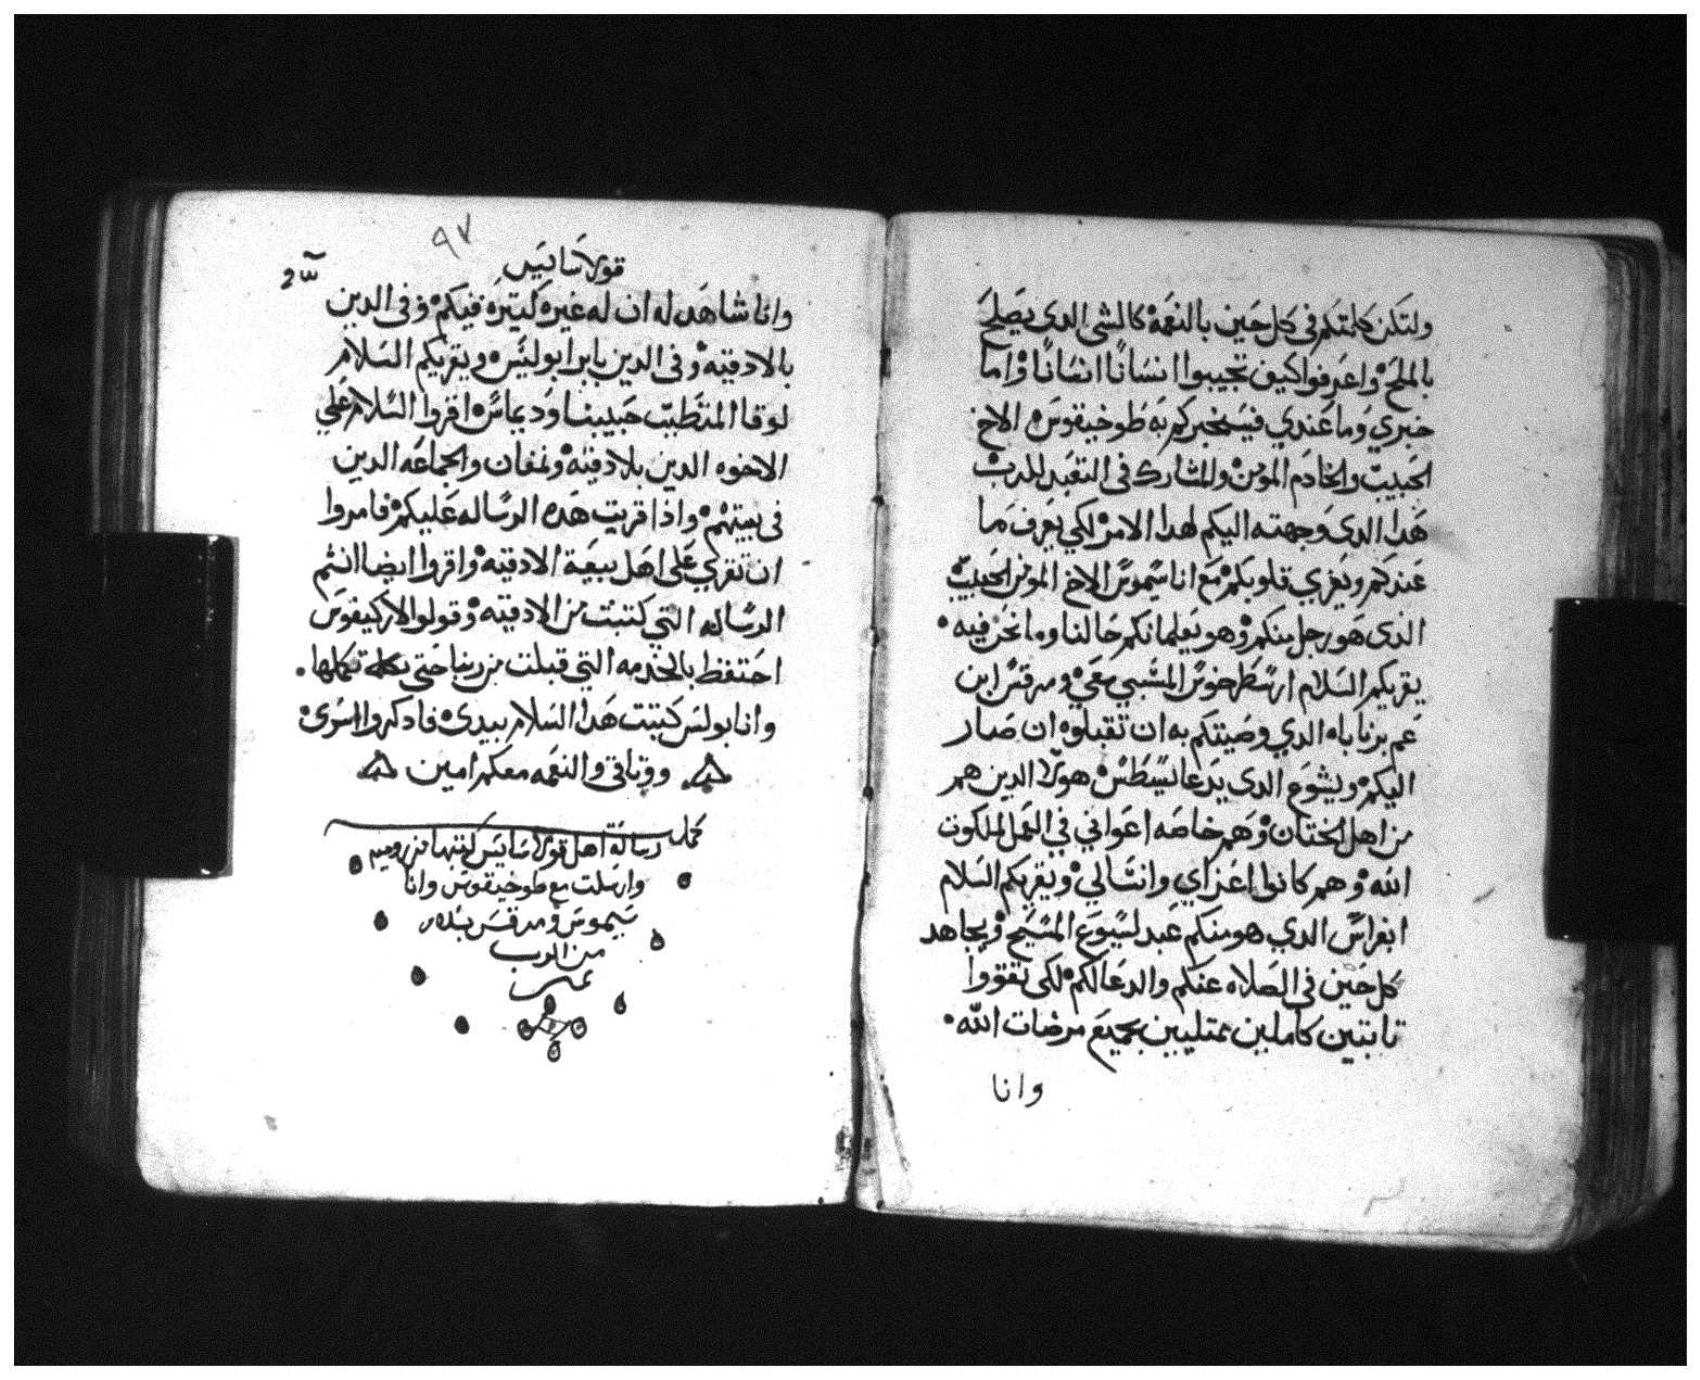 ولتكن كلمتكم في كل حين بالنعمه كالشي الدي يصلح
بالملح واعرفوا كيف تجيبوا انسانًا انسانًا واما
خبري وما عندي فيسخبركم به طوخيقوس الاخ
الحبيب والخادم المومن والمشارك في التعبد للرب
هدا الدي وجهته اليكم لهدا الامر لكي يعرف ما
عندكم ويعزي قلوبكم مع اناسيموس الاخ المومن الحبيب
الذي هو رجل منكم وهو يعلمانكم حالنا وما نحن فيه
يقريكم السلام ارسطرخوس المسبي معي ومرقس ابن
عم برناباه الدي وصيتكم به ان تقبلوه ان صار
اليكم ويشوع الدي يدعا يسطس هولا الدين هم
من اهل الختان وهم خاصه اعواني في العمل لملكوت
الله وهم كانوا اعزاي وانسالي ويقريكم السلام
ابفراس الدي هو منكم عبد ليسوع المسيح ويجاهد
كل حين في الصلاه عنكم والدعا لكم لكي تقووا
تابتين كاملين ممتليين بجميع مرضات الله
وانا
٩٧
قولاسايس
وانا شاهد له ان له غيره كتيره فيكم وفي الدين
بالادقيه وفي الدين بايرابوليس ويقريكم السلام
لوقا المتطبب حبيبنا وديماس اقروا السلام علي
الاخوه الدين بلادقيه ونمفان والجماعه الدين
في بيتهم واذا قريت هده الرساله عليكم فامروا
ان تقري علي اهل بيعة الادقيه واقروا ايضا انتم
الرساله التي كتبت من الادقيه وقولوا لاركيفوس
احتفظ بالخدمه التي قبلت من ربنا حتي تكملها
وانا بولس كتبت هدا السلام بيدي فادكروا اسري
ووتاقي والنعمه معكم امين
كملت رسالة اهل قولاسايس كتبها من روميه
وارسلت مع طوخيقوس وانا
سيموس ومرقس بسلام
من الرب